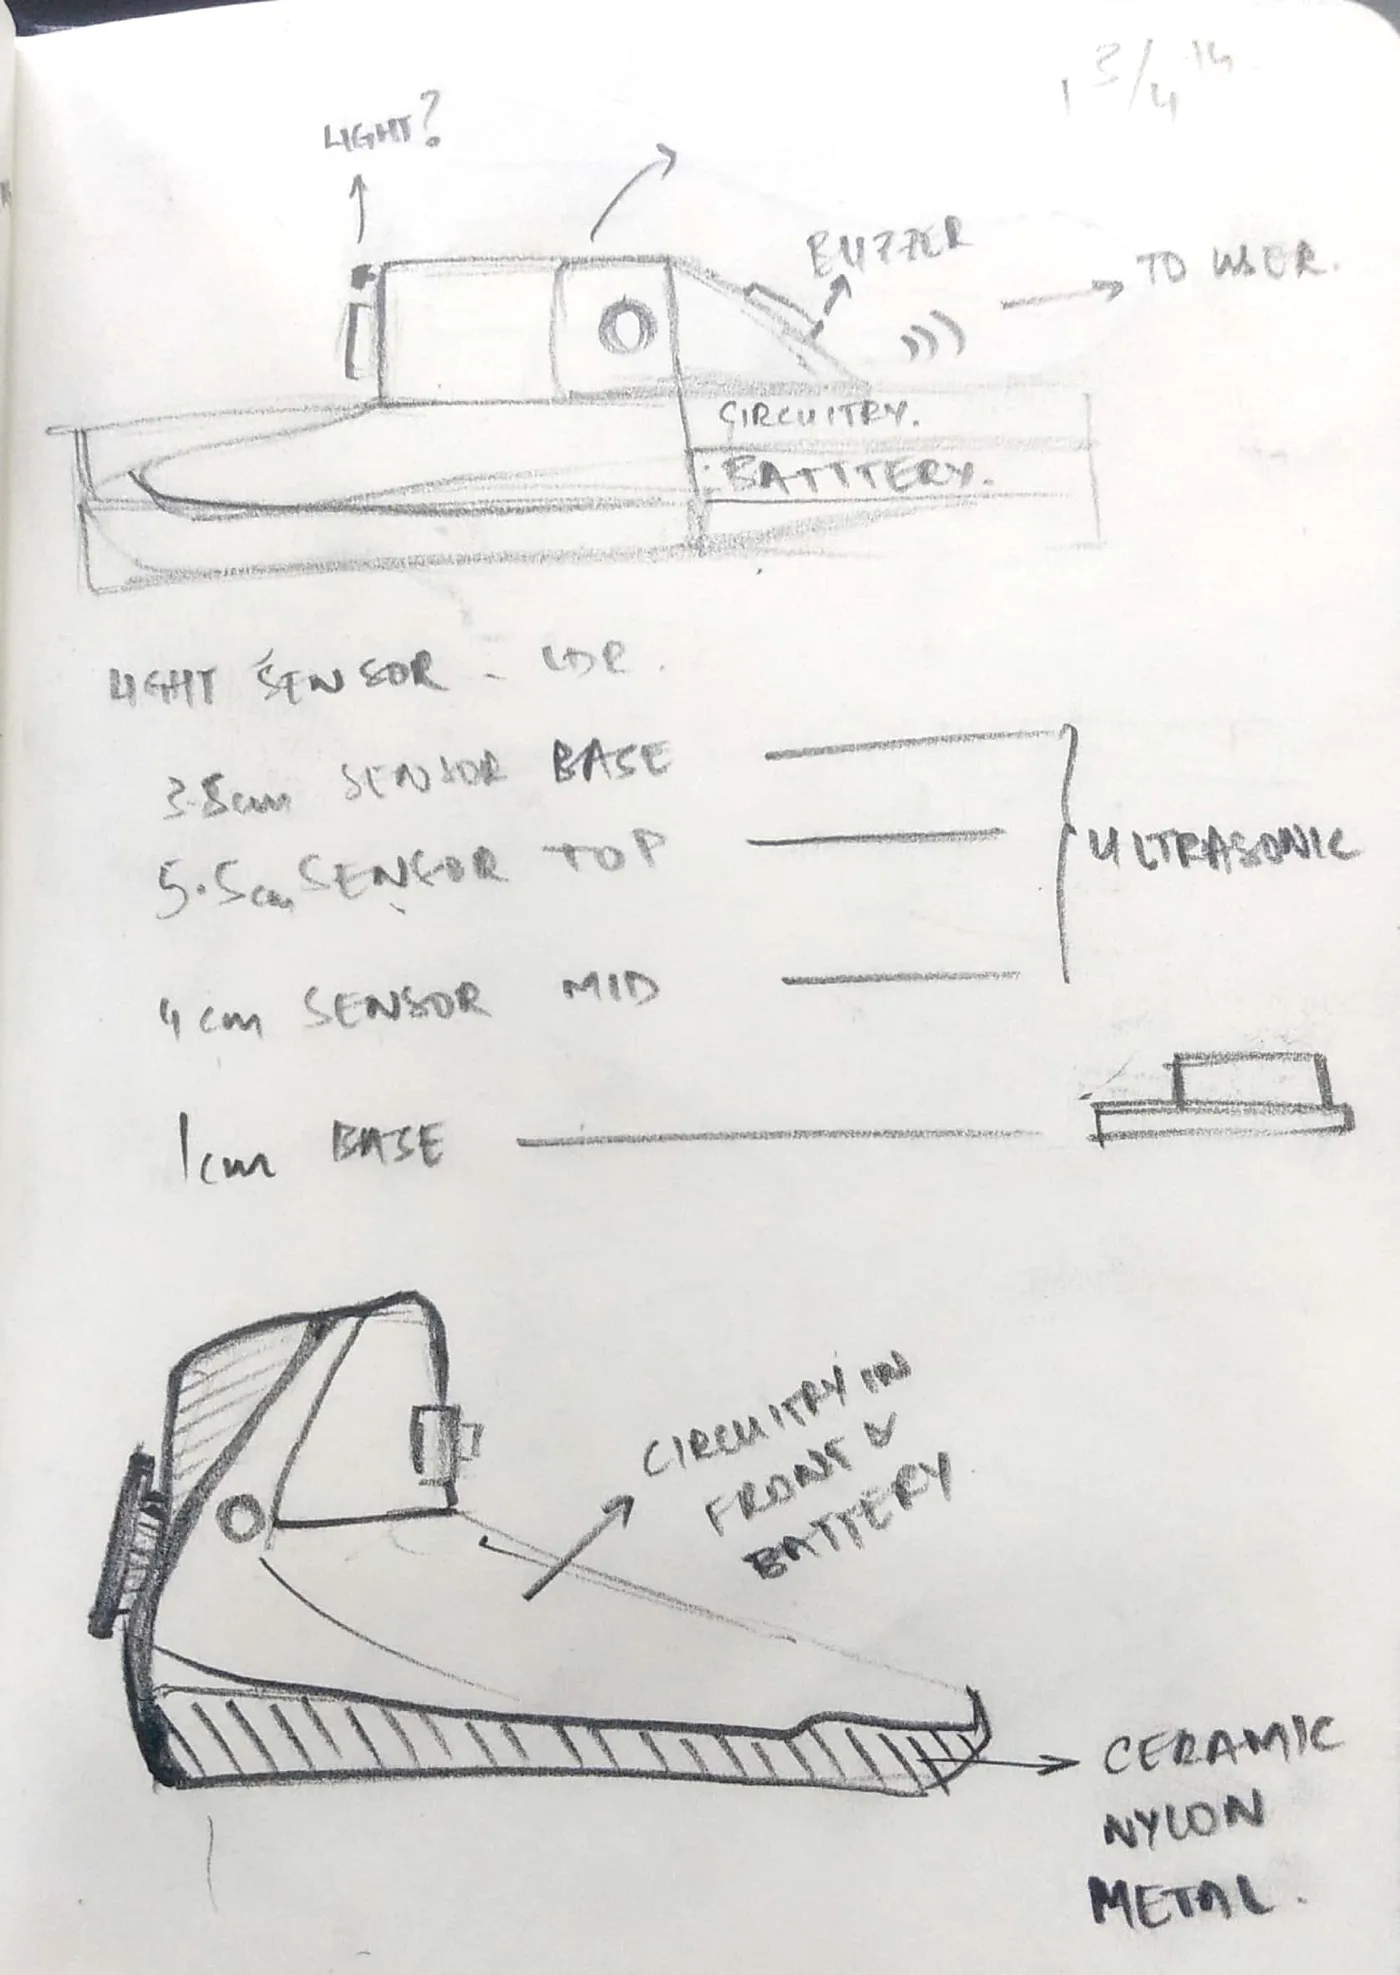 1 3/4 th
LIGHT?
BUZZER
TO USER.
CIRCUITRY.
BATTTERY.
LIGHT SENSOR - LDR.
3.8cm SENSOR BASE
5.5cm SENSOR TOP
ULTRASONIC
4cm SENSOR MID
1cm BASE
CIRCUITRY IN
FRONT &
BATTERY
CERAMIC
NYLON
METAL.